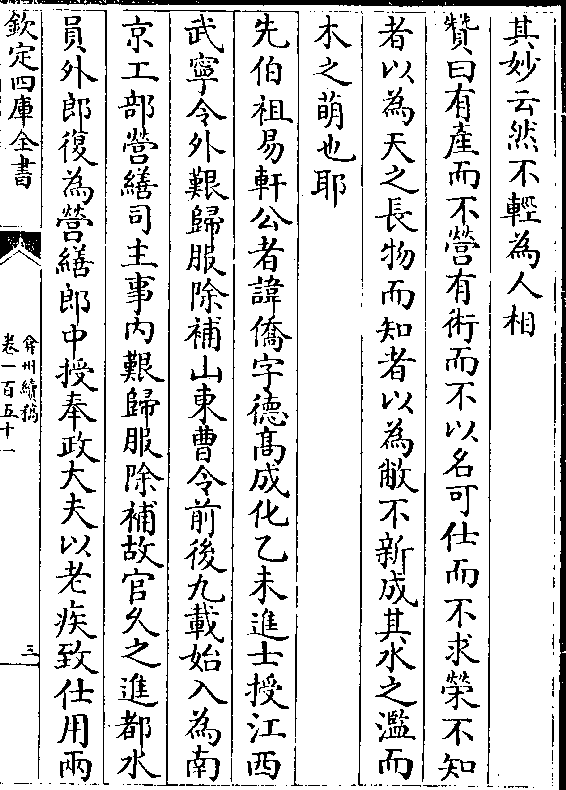 其妙云然不輕為人相
贊曰有產而不營有術而不以名可仕而不求榮不知
者以為天之長物而知者以為敝不新成其水之濫而
木之萌也耶
先伯祖易軒公者諱僑字德髙成化乙未進士授江西
武寧令外艱歸服除補山東曹令前後九載始入為南
京工部營繕司主事内艱歸服除補故官久之進都水
員外郎復為營繕郎中授奉政大夫以老疾致仕用兩
欽定四庫全書
弇州續稿
卷一百五十一
三